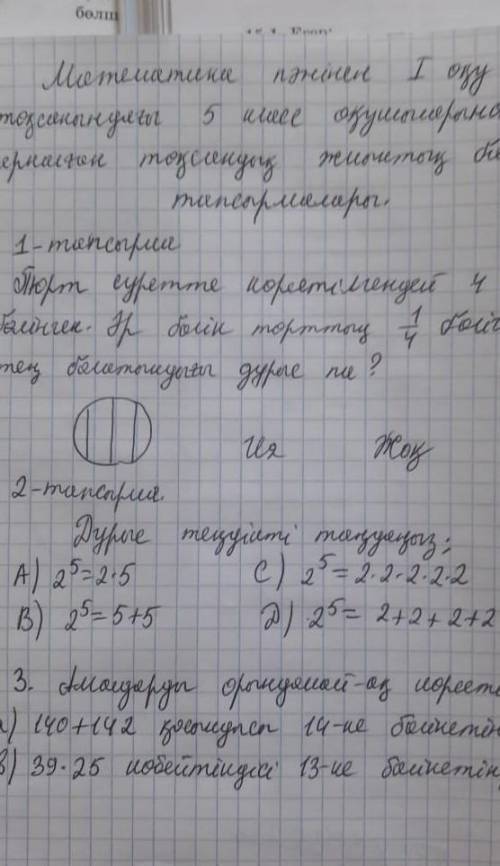 болш
Математика пәнінен I оқу
тоқсанындағы 5 класс оқушыларына
тоқсандық жиынтық ба
тапсырмалары.
1-тапсырма
Торт суретте көрсетілгендей 4
бөлінген. Әр бөлік торттың 1/4 бөліг
тең болатындығы дұрыс па?
Ия Жоқ
2-тапсырма.
Дұрыс теңдікті таңдаңыз;
A) 2⁵=2·5 C) 2⁵=2·2·2·2·2
B) 2⁵=5+5 D) 2⁵= 2+2+2+2
3. Амалдарды орындамай-ақ көрсете
a) 140+142 қосындысы 14-ке бөлінетін
B) 39·25 көбейтіндісі 13-ке бөлінетін